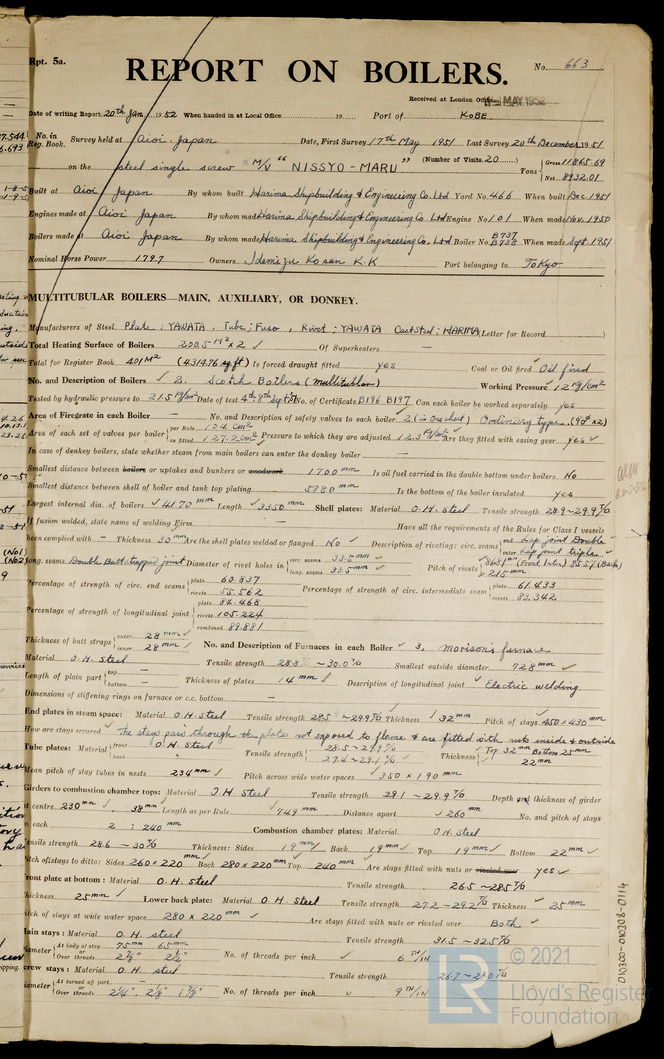 Rpt. 5a.
No. 663
REPORT ON BOILERS.
Received at London Office MAY 1952
Date of writing Report 20th Jan 1952 When handed in at Local Office 19 Port of KOBE
No. in Reg. Book. Survey held at Aioi Japan Date, First Survey 17th May 1951 Last Survey 20th December 1951
on the steel single screw M/V "NISSYO-MARU" (Number of Visits 20) Tons Gross 11865.69 Net 8932.01
Built at Aioi Japan By whom built Harima Shipbuilding & Engineering Co. Ltd Yard No. 466 When built Dec. 1951
Engines made at Aioi Japan By whom made Harima Shipbuilding & Engineering Co. Ltd Engine No. 101 When made Nov. 1950
Boilers made at Aioi Japan By whom made Harima Shipbuilding & Engineering Co. Ltd Boiler No. B737 B738 When made Sept. 1951
Nominal Horse Power 1797 Owners Idemizu Kosan K.K Port belonging to Tokyo
MULTITUBULAR BOILERS—MAIN, AUXILIARY, OR DONKEY.
Manufacturers of Steel Plate; YAWATA, Tube; Fuso, Rivet; YAWATA Cast steel; HARIMA (Letter for Record )
Total Heating Surface of Boilers 200.5 M² x 2 ✓ Of Superheaters —
Total for Register Book 401 M² (4314.76 sq ft) Is forced draught fitted yes Coal or Oil fired Oil fired
No. and Description of Boilers ✓ 2. Scotch Boilers (Multitubular) Working Pressure ✓ 12 Kg/cm²
Tested by hydraulic pressure to 21.5 Kg/cm² Date of test 4th 8th Sept 51 No. of Certificate B196. B197 Can each boiler be worked separately yes
Area of Firegrate in each Boiler — No. and Description of safety valves to each boiler 2 (in one chest) Ordinary type.
Area of each set of valves per boiler per Rule 104 cm² as fitted 127.2 cm² Pressure to which they are adjusted 12.3 Kg/cm² Are they fitted with easing gear yes ✓
In case of donkey boilers, state whether steam from main boilers can enter the donkey boiler —
Smallest distance between boilers or uptakes and bunkers or woodwork 1700 mm Is oil fuel carried in the double bottom under boilers No
Smallest distance between shell of boiler and tank top plating 5380 mm Is the bottom of the boiler insulated yes
Largest internal dia. of boilers ✓ 4170 mm Length ✓ 3350 mm Shell plates: Material O.H. steel Tensile strength 28.9~29.9 T/□
If fusion welded, state name of welding Firm — Have all the requirements of the Rules for Class I vessels
been complied with — Thickness 30 mm Are the shell plates welded or flanged No ✓ Description of riveting: circ. seams end Lap joint Double inter. Lap joint triple ✓
long. seams Double Butt strapped joint Diameter of rivet holes in circ. seams 33.5 mm long. seams 33.5 mm Pitch of rivets
Percentage of strength of circ. end seams plate 60.837 rivets 55.562 Percentage of strength of circ. intermediate seam plate 61.433 rivets 83.342
Percentage of strength of longitudinal joint plate 84.468 rivets 105.224 combined 89.881
Thickness of butt straps outer 28 mm ✓ inner 28 mm ✓ No. and Description of Furnaces in each Boiler ✓ 3, Morison's furnace
Material O.H. steel Tensile strength 28.8~30.0 T/□ Smallest outside diameter 928 mm ✓
Length of plain part top — bottom — Thickness of plates 14 mm ✓ Description of longitudinal joint ✓ Electric welding
Dimensions of stiffening rings on furnace or c.c. bottom —
End plates in steam space: Material O.H. steel Tensile strength 28.5~29.9 T/□ Thickness 32 mm Pitch of stays 450 x 430 mm
How are stays secured ✓ The stays pass through the plates not exposed to flame & are fitted with nuts inside & outside
Tube plates: Material front O.H. steel back " Tensile strength 28.5~29.9 T/□ 27.4~29.1 T/□ Thickness Top 32 mm Bottom 25 mm 22 mm
Mean pitch of stay tubes in nests 234 mm ✓ Pitch across wide water spaces 350 x 190 mm
Girders to combustion chamber tops: Material O.H steel Tensile strength 29.1~29.9 T/□ Depth and thickness of girder
at centre 230 mm, 38 mm Length as per Rule 749 mm Distance apart ✓ 260 mm No. and pitch of stays
in each 2 ; 240 mm Combustion chamber plates: Material O.H. steel
Tensile strength 28.6~30 T/□ Thickness: Sides 19 mm Back 19 mm Top 19 mm ✓ Bottom 22 mm
Pitch of stays to ditto: Sides 260 x 220 mm Back 280 x 220 mm Top 240 mm Are stays fitted with nuts or riveted over yes ✓
Front plate at bottom: Material O.H. steel Tensile strength 26.5~28.5 T/□
Thickness 25 mm Lower back plate: Material O.H. steel Tensile strength 27.2~29.2 T/□ Thickness ✓ 25 mm
Pitch of stays at wide water space 280 x 220 mm Are stays fitted with nuts or riveted over Both ✓
Main stays: Material O.H. steel Tensile strength 31.5~32.5 T/□
Diameter At body of stay 75 mm 65 mm Over threads 2⅞" 2½" No. of threads per inch ✓ 6 TH/IN
Screw stays: Material O.H. steel Tensile strength 26.7~28.0 T/□
Diameter At turned off part — Over threads 2¼" 2⅛" 1⅞" No. of threads per inch ✓ 9 TH/IN
010300-010308-0114
© 2021
Lloyd's Register
Foundation